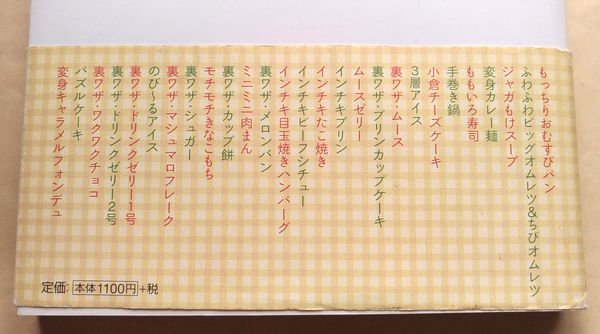 もっちりおむすびパン
ふわふわビッグオムレツ&ちびオムレツ
ジャガもけスープ
変身カレー麺
ももいろ寿司
手巻き鍋
小倉チーズケーキ
3層アイス
裏ワザ・ムース
裏ワザ・プリンカップケーキ
ムースゼリー
インチキプリン
インチキたこ焼き
インチキビーフシチュー
インチキ目玉焼きハンバーグ
裏ワザ・メロンパン
ミニミニ肉まん
裏ワザ・カップ餅
モチモチきなこもち
裏ワザ・シュガー
裏ワザ・マシュマロフレーク
のび〜るアイス
裏ワザ・ドリンクゼリー1号
裏ワザ・ドリンクゼリー2号
裏ワザ・ワクワクチョコ
パズルケーキ
変身キャラメルフォンデュ
定価:本体1100円+税